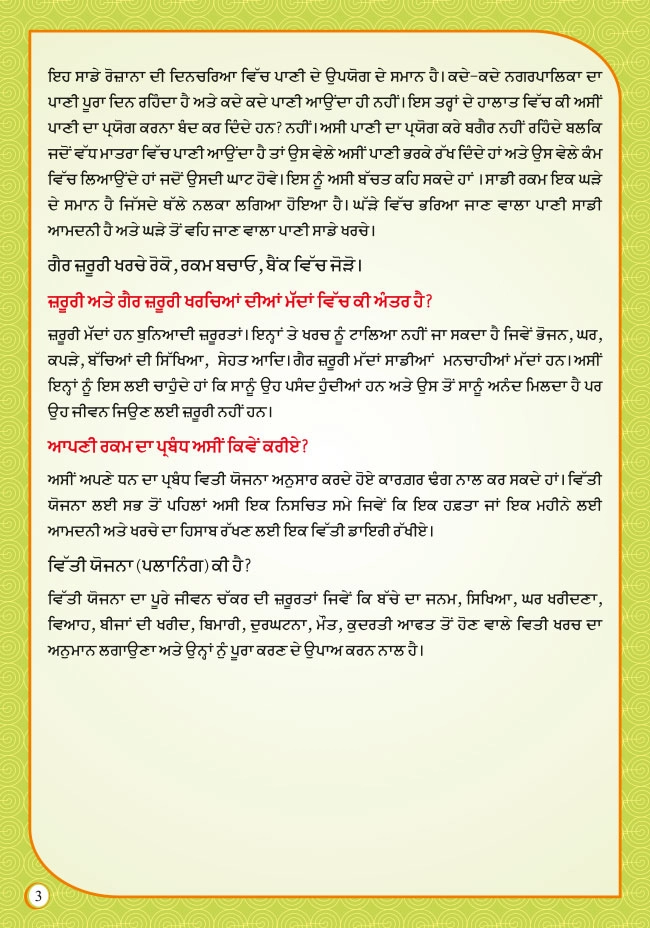 ਇਹ ਸਾਡੇ ਰੋਜ਼ਾਨਾ ਦੀ ਦਿਨਚਰਿਆ ਵਿੱਚ ਪਾਣੀ ਦੇ ਉਪਯੋਗ ਦੇ ਸਮਾਨ ਹੈ। ਕਦੇ-ਕਦੇ ਨਗਰਪਾਲਿਕਾ ਦਾ
ਪਾਣੀ ਪੂਰਾ ਦਿਨ ਰਹਿੰਦਾ ਹੈ ਅਤੇ ਕਦੇ ਕਦੇ ਪਾਣੀ ਆਉਂਦਾ ਹੀ ਨਹੀਂ। ਇਸ ਤਰ੍ਹਾਂ ਦੇ ਹਾਲਾਤ ਵਿੱਚ ਕੀ ਅਸੀਂ
ਪਾਣੀ ਦਾ ਪ੍ਰਯੋਗ ਕਰਨਾ ਬੰਦ ਕਰ ਦਿੰਦੇ ਹਨ? ਨਹੀਂ। ਅਸੀ ਪਾਣੀ ਦਾ ਪ੍ਰਯੋਗ ਕਰੇ ਬਗੈਰ ਨਹੀਂ ਰਹਿੰਦੇ ਬਲਕਿ
ਜਦੋਂ ਵੱਧ ਮਾਤਰਾ ਵਿੱਚ ਪਾਣੀ ਆਉਂਦਾ ਹੈ ਤਾਂ ਉਸ ਵੇਲੇ ਅਸੀਂ ਪਾਣੀ ਭਰਕੇ ਰੱਖ ਦਿੰਦੇ ਹਾਂ ਅਤੇ ਉਸ ਵੇਲੇ ਕੰਮ
ਵਿੱਚ ਲਿਆਉਂਦੇ ਹਾਂ ਜਦੋਂ ਉਸਦੀ ਘਾਟ ਹੋਵੇ। ਇਸ ਨੂੰ ਅਸੀ ਬੱਚਤ ਕਹਿ ਸਕਦੇ ਹਾਂ । ਸਾਡੀ ਰਕਮ ਇਕ ਘੜੇ
ਦੇ ਸਮਾਨ ਹੈ ਜਿੱਸਦੇ ਥੱਲੇ ਨਲਕਾ ਲਗਿਆ ਹੋਇਆ ਹੈ। ਘੱੜੇ ਵਿੱਚ ਭਰਿਆ ਜਾਣ ਵਾਲਾ ਪਾਣੀ ਸਾਡੀ
ਆਮਦਨੀ ਹੈ ਅਤੇ ਘੜੇ ਤੋਂ ਵਹਿ ਜਾਣ ਵਾਲਾ ਪਾਣੀ ਸਾਡੇ ਖਰਚੇ।
ਗੈਰ ਜ਼ਰੂਰੀ ਖਰਚੇ ਰੋਕੋ, ਰਕਮ ਬਚਾਓ, ਬੈਂਕ ਵਿੱਚ ਜੋੜੋ।
ਜ਼ਰੂਰੀ ਅਤੇ ਗੈਰ ਜ਼ਰੂਰੀ ਖਰਚਿਆਂ ਦੀਆਂ ਮੱਦਾਂ ਵਿੱਚ ਕੀ ਅੰਤਰ ਹੈ?
ਜ਼ਰੂਰੀ ਮੱਦਾਂ ਹਨ ਬੁਨਿਆਦੀ ਜ਼ਰੂਰਤਾਂ। ਇਨ੍ਹਾਂ ਤੇ ਖਰਚ ਨੂੰ ਟਾਲਿਆ ਨਹੀਂ ਜਾ ਸਕਦਾ ਹੈ ਜਿਵੇਂ ਭੋਜਨ, ਘਰ,
ਕਪੜੇ, ਬੱਚਿਆਂ ਦੀ ਸਿੱਖਿਆ, ਸੇਹਤ ਆਦਿ। ਗੈਰ ਜ਼ਰੂਰੀ ਮੱਦਾਂ ਸਾਡੀਆਂ ਮਨਚਾਹੀਆਂ ਮੱਦਾਂ ਹਨ। ਅਸੀਂ
ਇਨ੍ਹਾਂ ਨੂੰ ਇਸ ਲਈ ਚਾਹੁੰਦੇ ਹਾਂ ਕਿ ਸਾਨੂੰ ਉਹ ਪਸੰਦ ਹੁੰਦੀਆਂ ਹਨ ਅਤੇ ਉਸ ਤੋਂ ਸਾਨੂੰ ਅਨੰਦ ਮਿਲਦਾ ਹੈ ਪਰ
ਉਹ ਜੀਵਨ ਜਿਉਣ ਲਈ ਜ਼ਰੂਰੀ ਨਹੀਂ ਹਨ।
ਆਪਣੀ ਰਕਮ ਦਾ ਪ੍ਰਬੰਧ ਅਸੀਂ ਕਿਵੇਂ ਕਰੀਏ?
ਅਸੀਂ ਅਪਣੇ ਧਨ ਦਾ ਪ੍ਰਬੰਧ ਵਿਤੀ ਯੋਜਨਾ ਅਨੁਸਾਰ ਕਰਦੇ ਹੋਏ ਕਾਰਗ਼ਰ ਢੰਗ ਨਾਲ ਕਰ ਸਕਦੇ ਹਾਂ। ਵਿੱਤੀ
ਯੋਜਨਾ ਲਈ ਸਭ ਤੋਂ ਪਹਿਲਾਂ ਅਸੀ ਇਕ ਨਿਸਚਿਤ ਸਮੇ ਜਿਵੇਂ ਕਿ ਇਕ ਹਫ਼ਤਾ ਜਾਂ ਇਕ ਮਹੀਨੇ ਲਈ
ਆਮਦਨੀ ਅਤੇ ਖਰਚੇ ਦਾ ਹਿਸਾਬ ਰੱਖਣ ਲਈ ਇਕ ਵਿੱਤੀ ਡਾਇਰੀ ਰੱਖੀਏ।
ਵਿੱਤੀ ਯੋਜਨਾ (ਪਲਾਨਿੰਗ) ਕੀ ਹੈ?
ਵਿੱਤੀ ਯੋਜਨਾ ਦਾ ਪੂਰੇ ਜੀਵਨ ਚੱਕਰ ਦੀ ਜ਼ਰੂਰਤਾਂ ਜਿਵੇਂ ਕਿ ਬੱਚੇ ਦਾ ਜਨਮ, ਸਿਖਿਆ, ਘਰ ਖਰੀਦਣਾ,
ਵਿਆਹ, ਬੀਜਾਂ ਦੀ ਖਰੀਦ, ਬਿਮਾਰੀ, ਦੁਰਘਟਨਾ, ਮੌਤ, ਕੁਦਰਤੀ ਆਫਤ ਤੋਂ ਹੋਣ ਵਾਲੇ ਵਿਤੀ ਖਰਚ ਦਾ
ਅਨੁਮਾਨ ਲਗਾਉਣਾ ਅਤੇ ਉਨ੍ਹਾਂ ਨੂੰ ਪੂਰਾ ਕਰਣ ਦੇ ਉਪਾਅ ਕਰਨ ਨਾਲ ਹੈ।
3